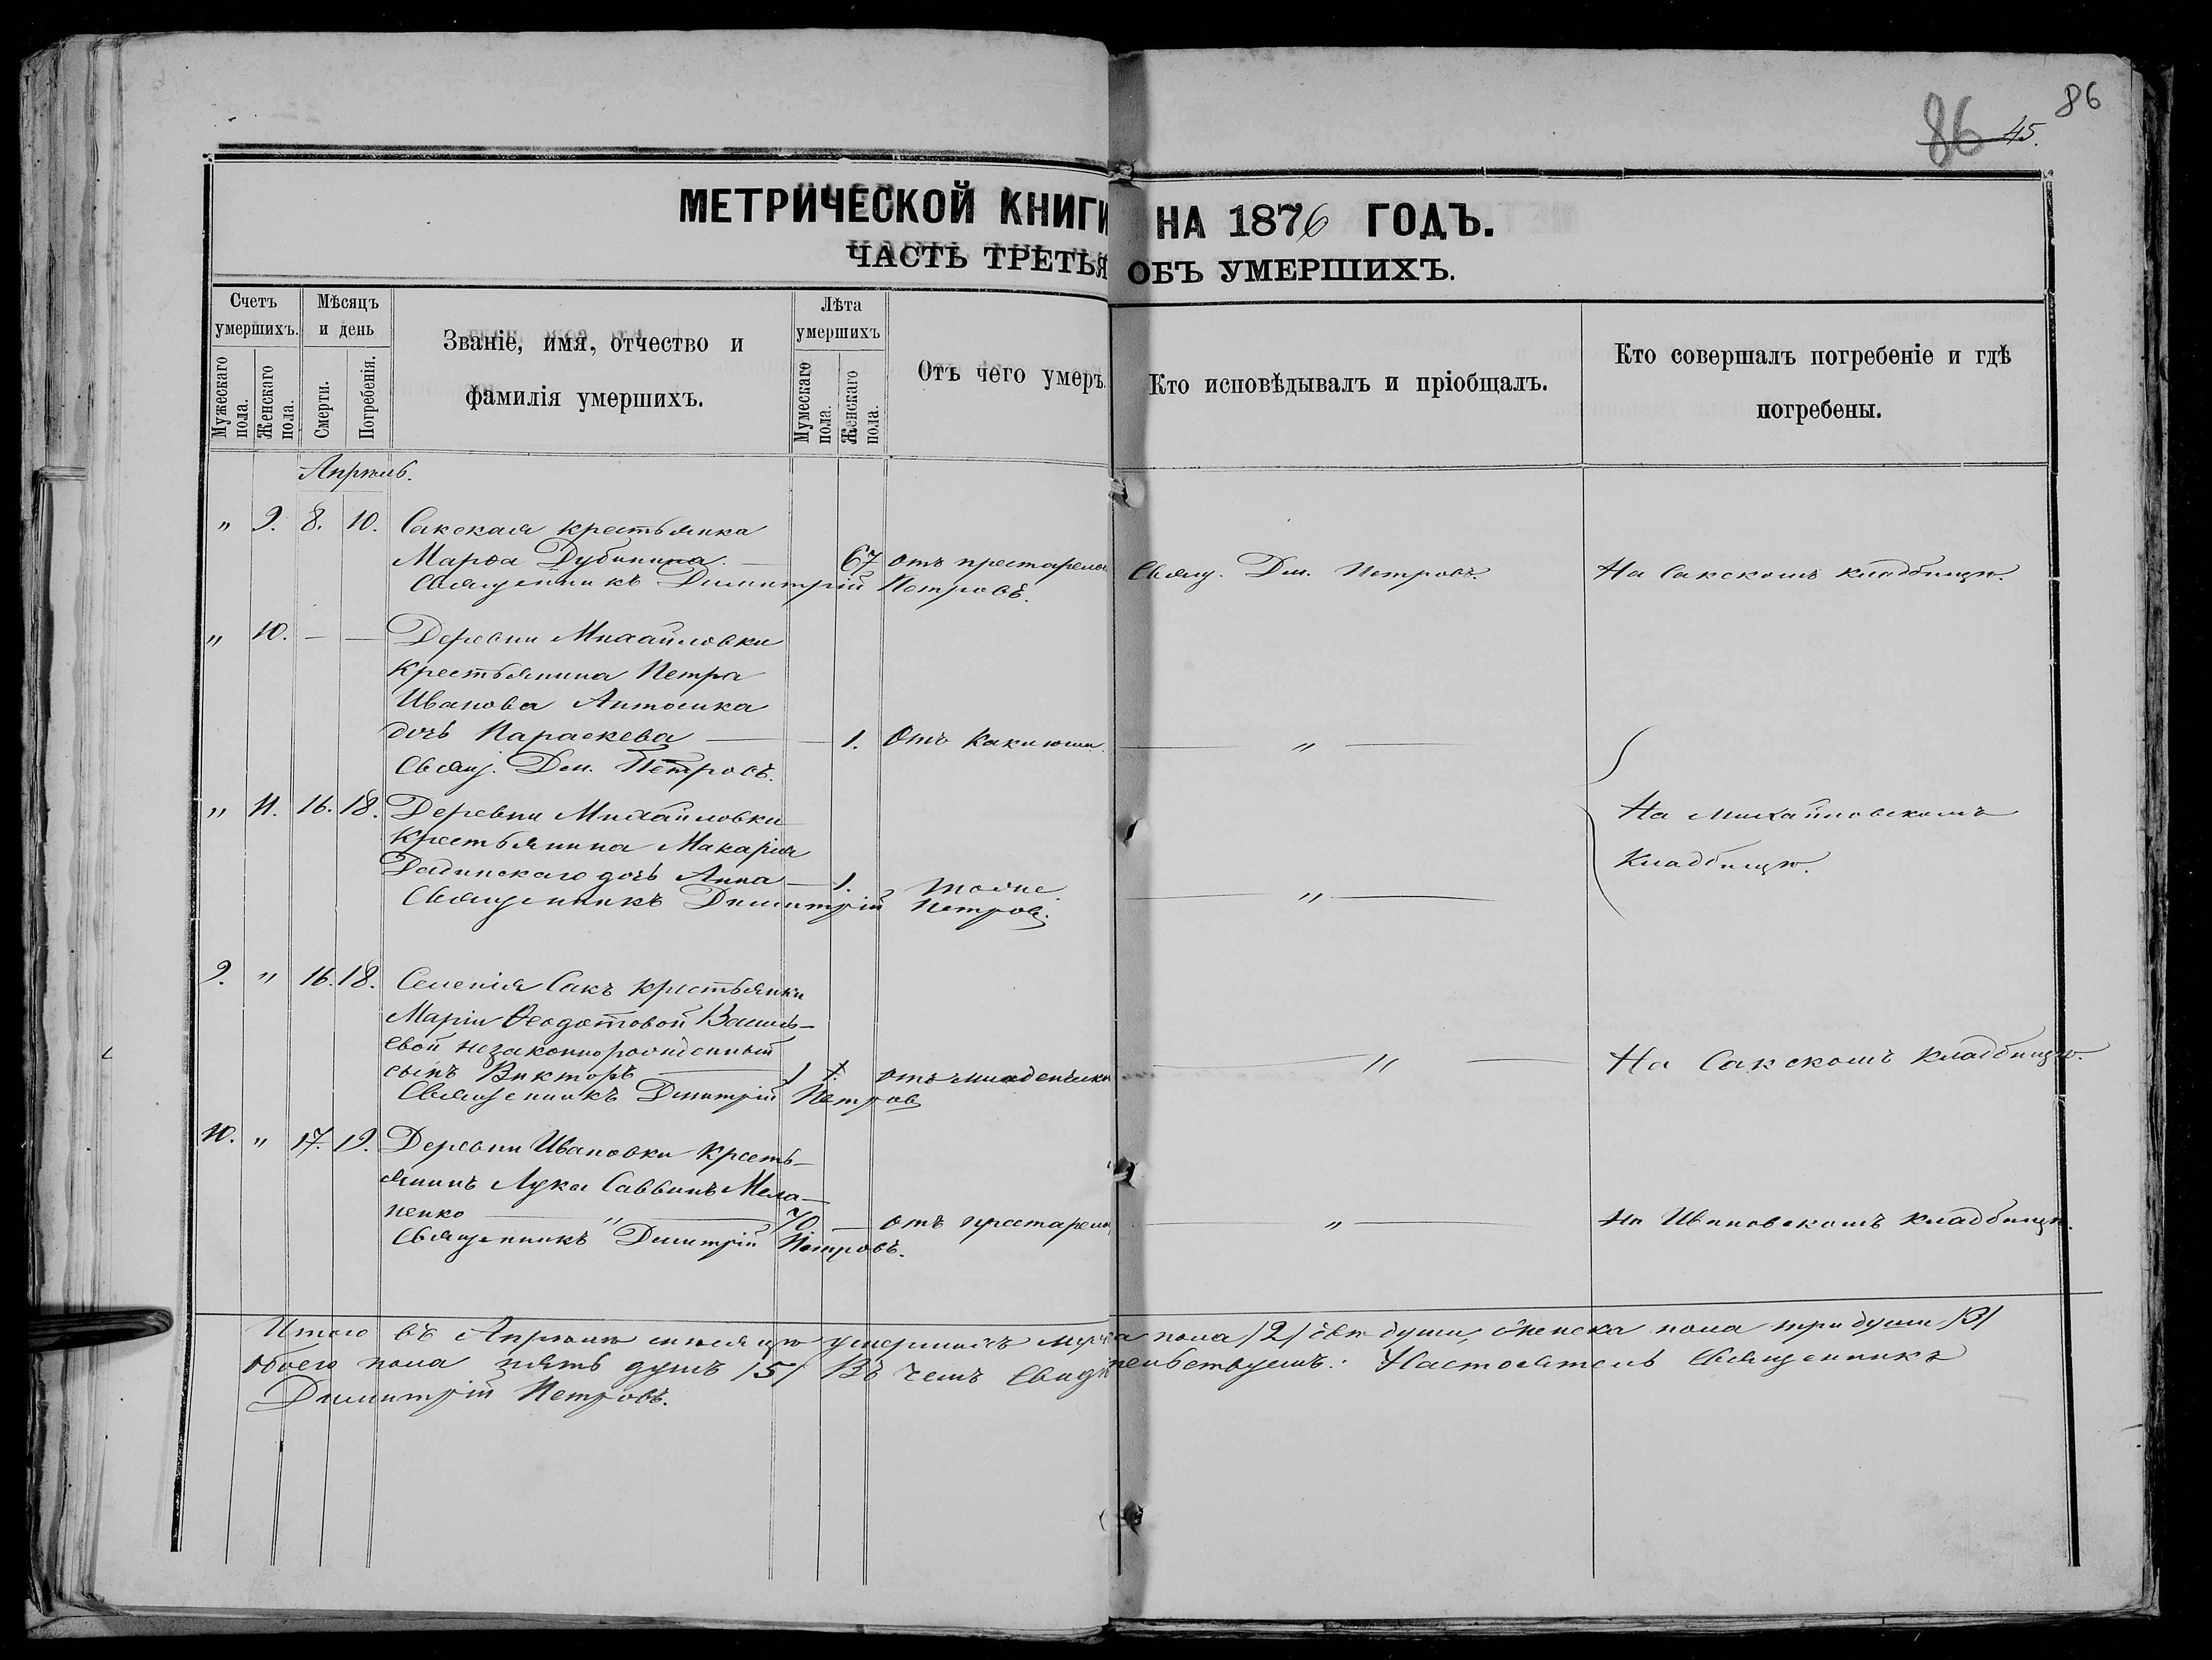 86
86 45.
МЕТРИЧЕСКОЙ КНИГИ НА 1876 ГОДЪ.
ЧАСТЬ ТРЕТЬЯ ОБЪ УМЕРШИХЪ.
Счетъ умершихъ.
Мужескаго пола.
Женскаго пола.
Мѣсяцъ и день
Смерти.
Погребенія.
Званіе, имя, отчество и
фамилія умершихъ.
Лѣта умершихъ
Мужескаго пола.
Женскаго пола.
Отъ чего умеръ.
Кто исповѣдывалъ и пріобщалъ.
Кто совершалъ погребеніе и гдѣ
погребены.
Апрѣль.
" 9. 8. 10. Сакская крестьянка
Марѳа Дубинина. — 67 отъ престарело Свящ. Дм. Петровъ. На Сакскомъ кладбищѣ.
Священникъ Димитрій Петровъ.
" 10. — — Деревни Михайловки
крестьянина Петра
Иванова Антоника
дочь Параскева — — 1. Отъ Коклюша. — " —
Свящ. Дм. Петровъ.
" 11. 16. 18. Деревни Михайловки На Михайловскомъ
крестьянина Макарія Кладбищѣ.
дочь Анна — 1. тоже — " —
Священникъ Димитрій Петровъ.
9. " 16. 18. Селенія Сакъ крестьянки
Маріи Ѳеодотовой Василь-
евой незаконнорожденный
сынъ Викторъ — 1 отъ младенческ — " — На Сакскомъ кладбищѣ.
Священникъ Димитрій Петров
10. " 17. 19. Деревни Ивановки кресть-
янинъ Лука Саввинъ Мела-
ненко — " — 70 — отъ престарело — " — На Ивановскомъ кладбищѣ.
Священникъ Димитрій Петровъ.
Итого въ Апрѣлѣ мѣсяцѣ умершихъ мужска пола /2/ двѣ души, женска пола три души /3/
обоего пола пять душъ /5/ Въ чемъ Свидѣтельствуемъ: Настоятель Священникъ
Димитрій Петровъ.